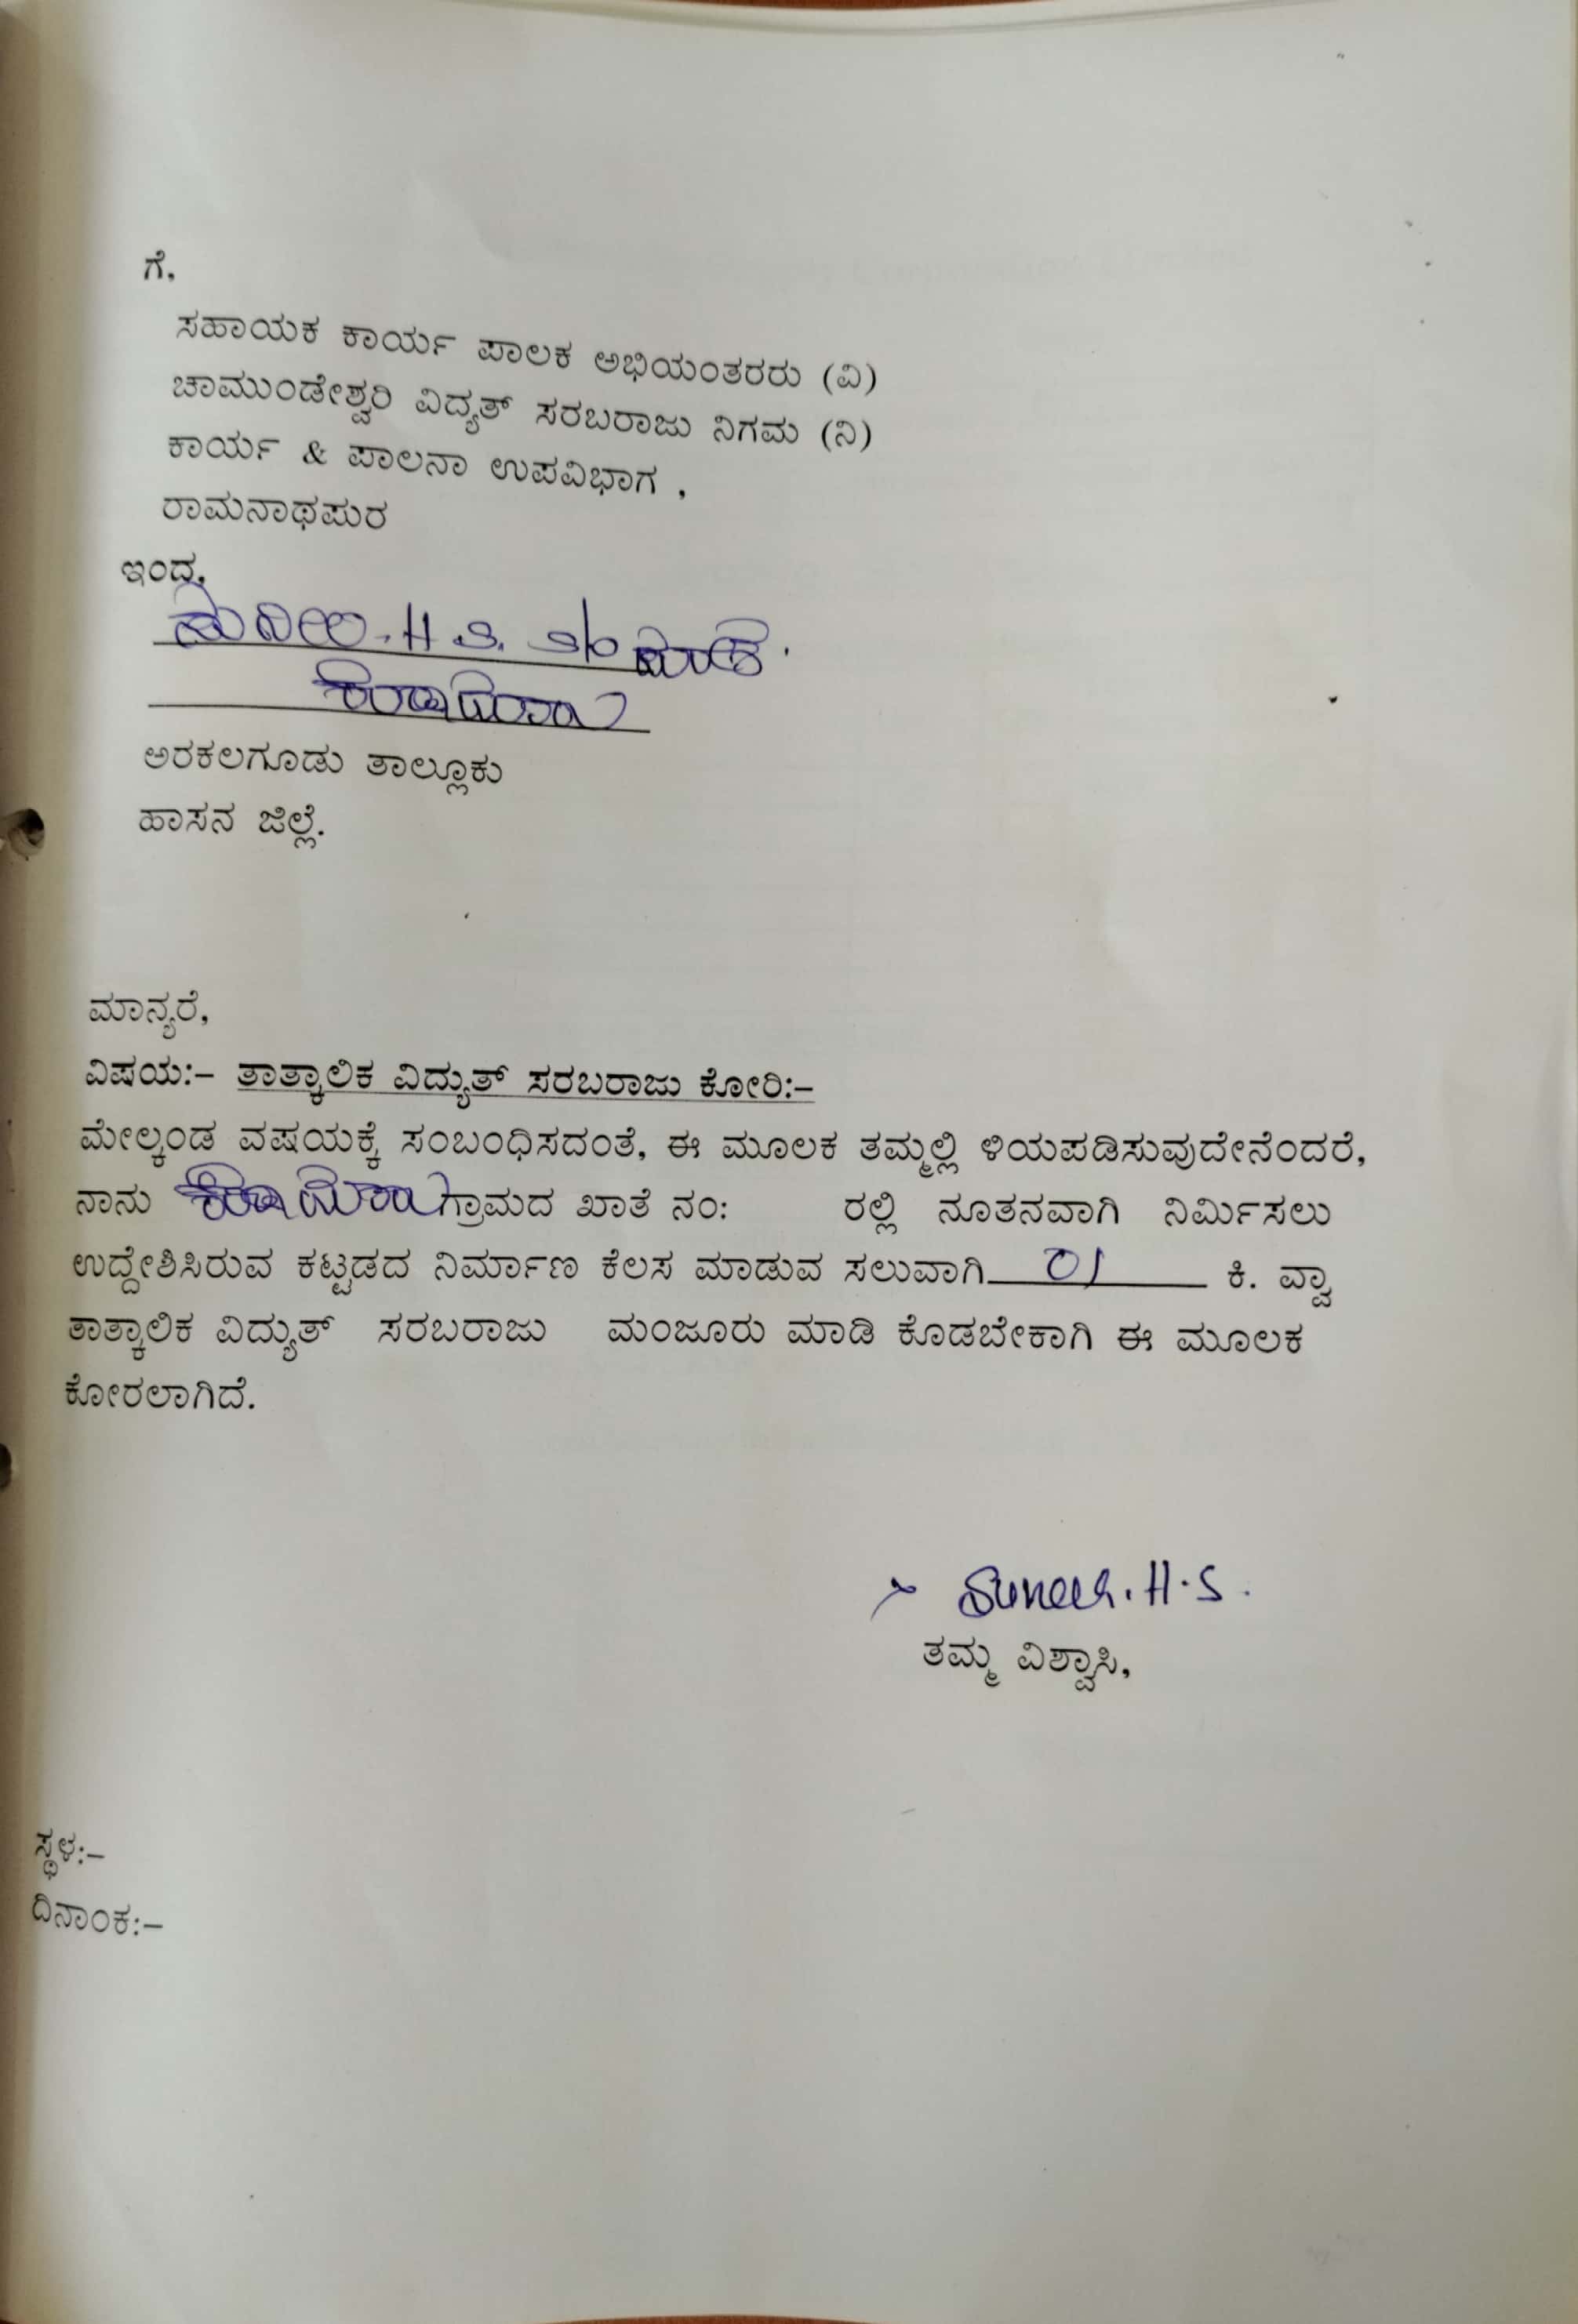 ಗೆ,
ಸಹಾಯಕ ಕಾರ್ಯ ಪಾಲಕ ಅಭಿಯಂತರರು (ವಿ)
ಚಾಮುಂಡೇಶ್ವರಿ ವಿದ್ಯತ್ ಸರಬರಾಜು ನಿಗಮ (ನಿ)
ಕಾರ್ಯ & ಪಾಲನಾ ಉಪವಿಭಾಗ ,
ರಾಮನಾಥಪುರ
ಇಂದ,
H.S.
ಅರಕಲಗೂಡು ತಾಲ್ಲೂಕು
ಹಾಸನ ಜಿಲ್ಲೆ.
ಮಾನ್ಯರೆ,
ವಿಷಯ:– ತಾತ್ಕಾಲಿಕ ವಿದ್ಯುತ್ ಸರಬರಾಜು ಕೋರಿ:–
ಮೇಲ್ಕಂಡ ವಷಯಕ್ಕೆ ಸಂಬಂಧಿಸದಂತೆ, ಈ ಮೂಲಕ ತಮ್ಮಲ್ಲಿ ಳಿಯಪಡಿಸುವುದೇನೆಂದರೆ,
ನಾನು ಗ್ರಾಮದ ಖಾತೆ ನಂ: ರಲ್ಲಿ ನೂತನವಾಗಿ ನಿರ್ಮಿಸಲು
ಉದ್ದೇಶಿಸಿರುವ ಕಟ್ಟಡದ ನಿರ್ಮಾಣ ಕೆಲಸ ಮಾಡುವ ಸಲುವಾಗಿ 01 ಕಿ. ವ್ವಾ
ತಾತ್ಕಾಲಿಕ ವಿದ್ಯುತ್ ಸರಬರಾಜು ಮಂಜೂರು ಮಾಡಿ ಕೊಡಬೇಕಾಗಿ ಈ ಮೂಲಕ
ಕೋರಲಾಗಿದೆ.
H.S.
ತಮ್ಮ ವಿಶ್ವಾಸಿ,
ಸ್ಥಳ:–
ದಿನಾಂಕ:–